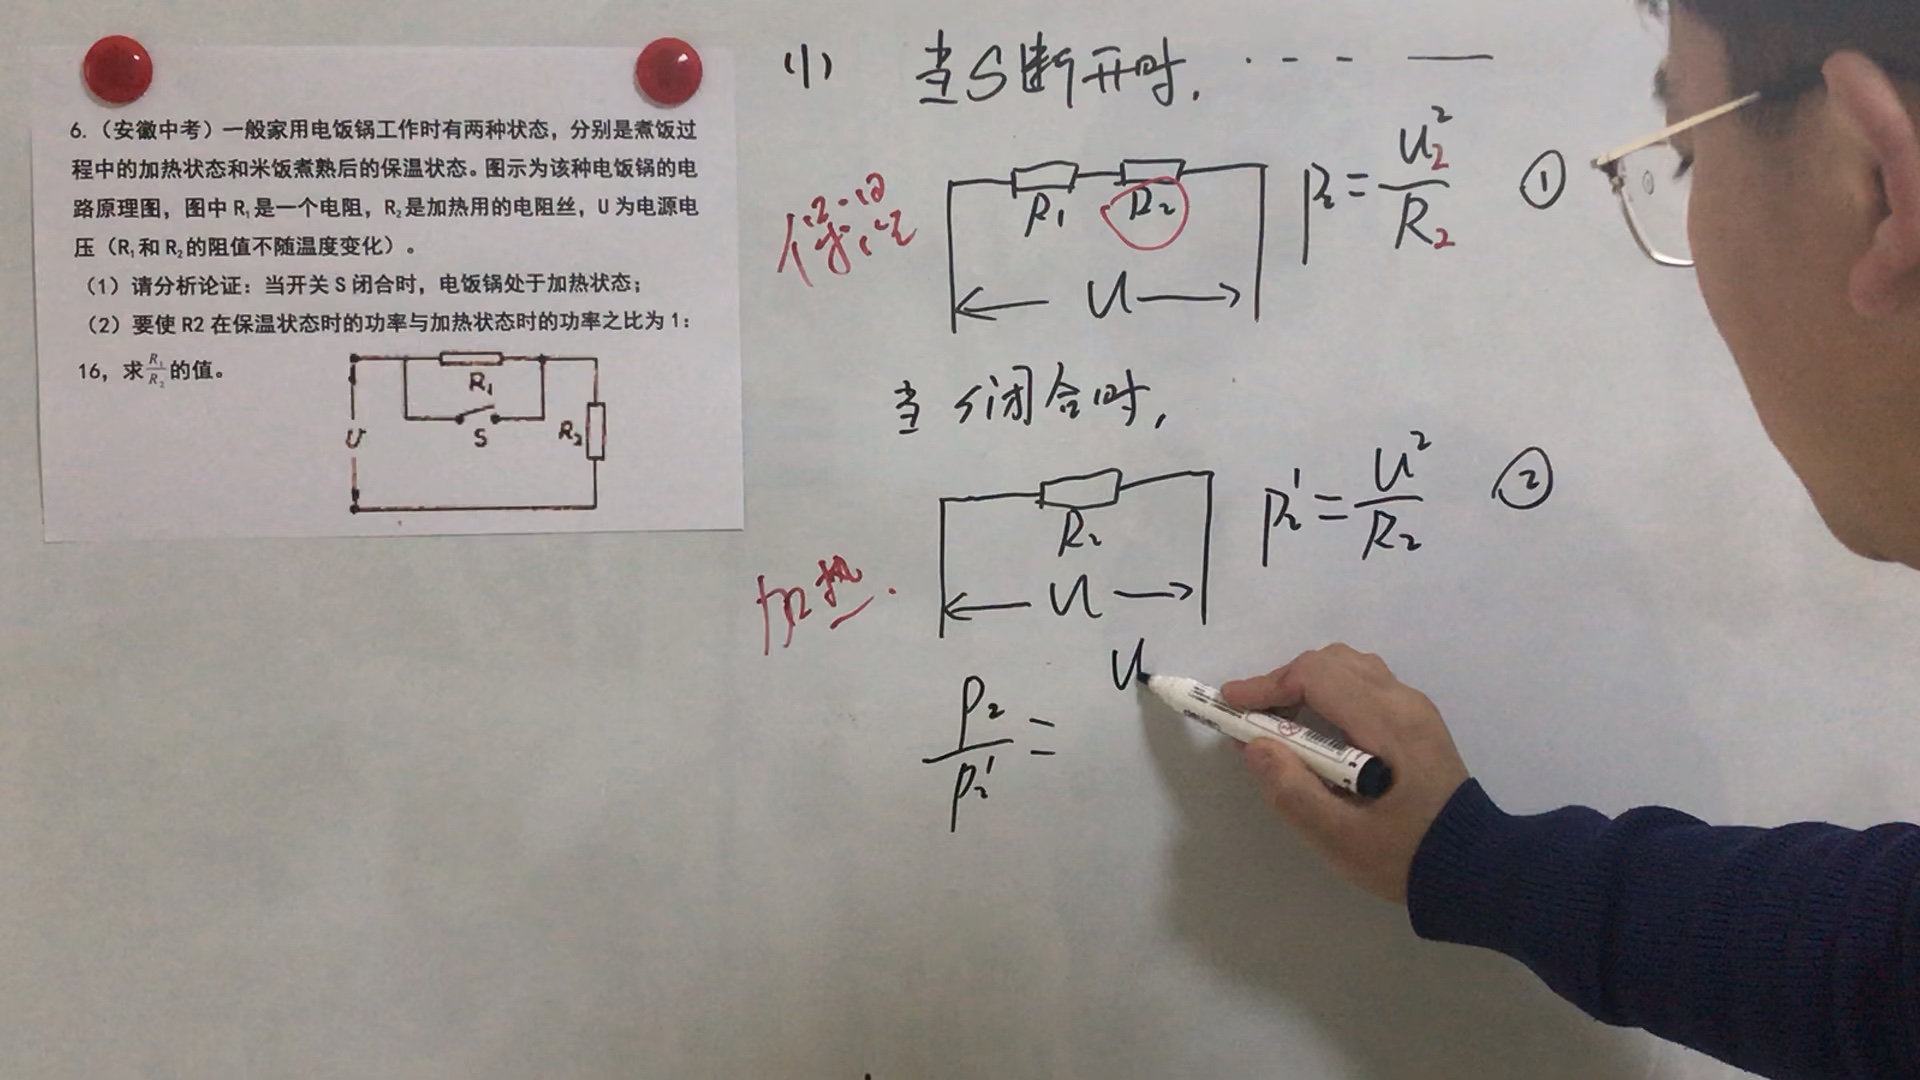 6.（安徽中考）一般家用电饭锅工作时有两种状态，分别是煮饭过
程中的加热状态和米饭煮熟后的保温状态。图示为该种电饭锅的电
路原理图，图中R₁是一个电阻，R₂是加热用的电阻丝，U为电源电
压（R₁和R₂的阻值不随温度变化）。
（1）请分析论证：当开关S闭合时，电饭锅处于加热状态；
（2）要使R2在保温状态时的功率与加热状态时的功率之比为1：
16，求R₁/R₂的值。
R₁
S
U
R₂
(1) 当S断开时，
保温
R₁ R₂
U
P₂=U₂²/R₂ ①
当S闭合时，
加热
R₂
U
P₂'=U²/R₂ ②
P₂/P₂'= U